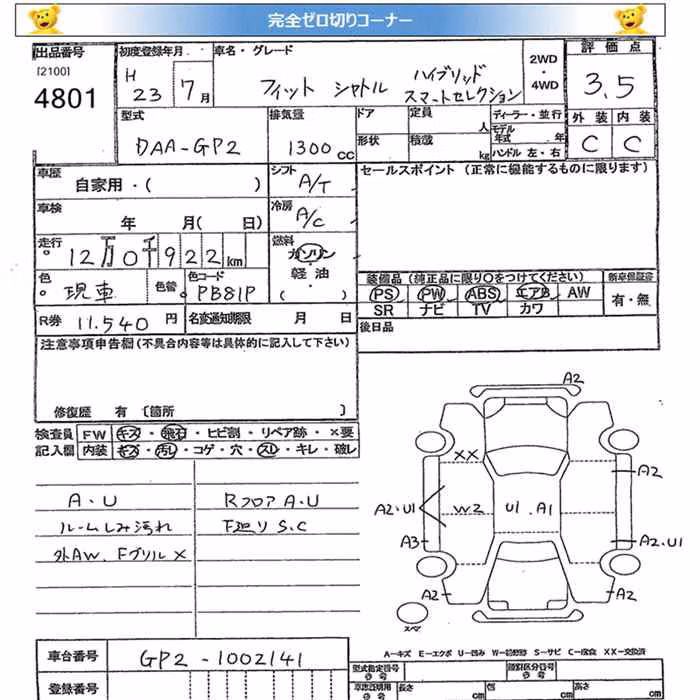 完全ゼロ切りコーナー
出品番号
[2100]
4801
初度登録年月
H 23 7月
車名・グレード
フィット シャトル ハイブリッド
スマートセレクション
2WD
・
4WD
評価点
3.5
型式
DAA-GP2
排気量
1300 CC
ドア
定員
人
形状
積載
kg
ディーラー・並行
モデル
年式 年
ハンドル 左・右
外装 内装
C C
車歴
自家用・( )
シフト
A/T
セールスポイント (正常に機能するものに限ります)
車検
年 月( 日)
冷房
A/C
走行
12万0千922km
燃料
ガソリン
・
軽油
( )
色
現車
色替
色コード
PB81P
装備品 (純正品に限り○をつけてください)
新車保証書
PS PW ABS エアB AW
有・無
SR ナビ TV カワ
R券 11.540 円
名変通知期限 月 日
後日品
注意事項申告欄(不具合内容等は具体的に記入して下さい)
修復歴 有 〔箇所 〕
検査員
記入欄
FW キズ・飛石・ヒビ割・リペア跡・×要
内装 キズ・汚れ・コゲ・穴・スレ・キレ・破レ
A・U
ルームしみ汚れ
外AW. Fグリル X
Rフロア A・U
下廻り S.C
A2
XX
A2
A2・U1
W2
U1 . A1
A3
A2.U1
A2
A2
スペア
A-キズ E-エクボ U-凹み W-補修跡 S-サビ C-腐食 XX-交換済
車台番号
GP2-1002141
型式指定番号
類別区分番号
登録番号
長さ
cm
幅
cm
高さ
cm